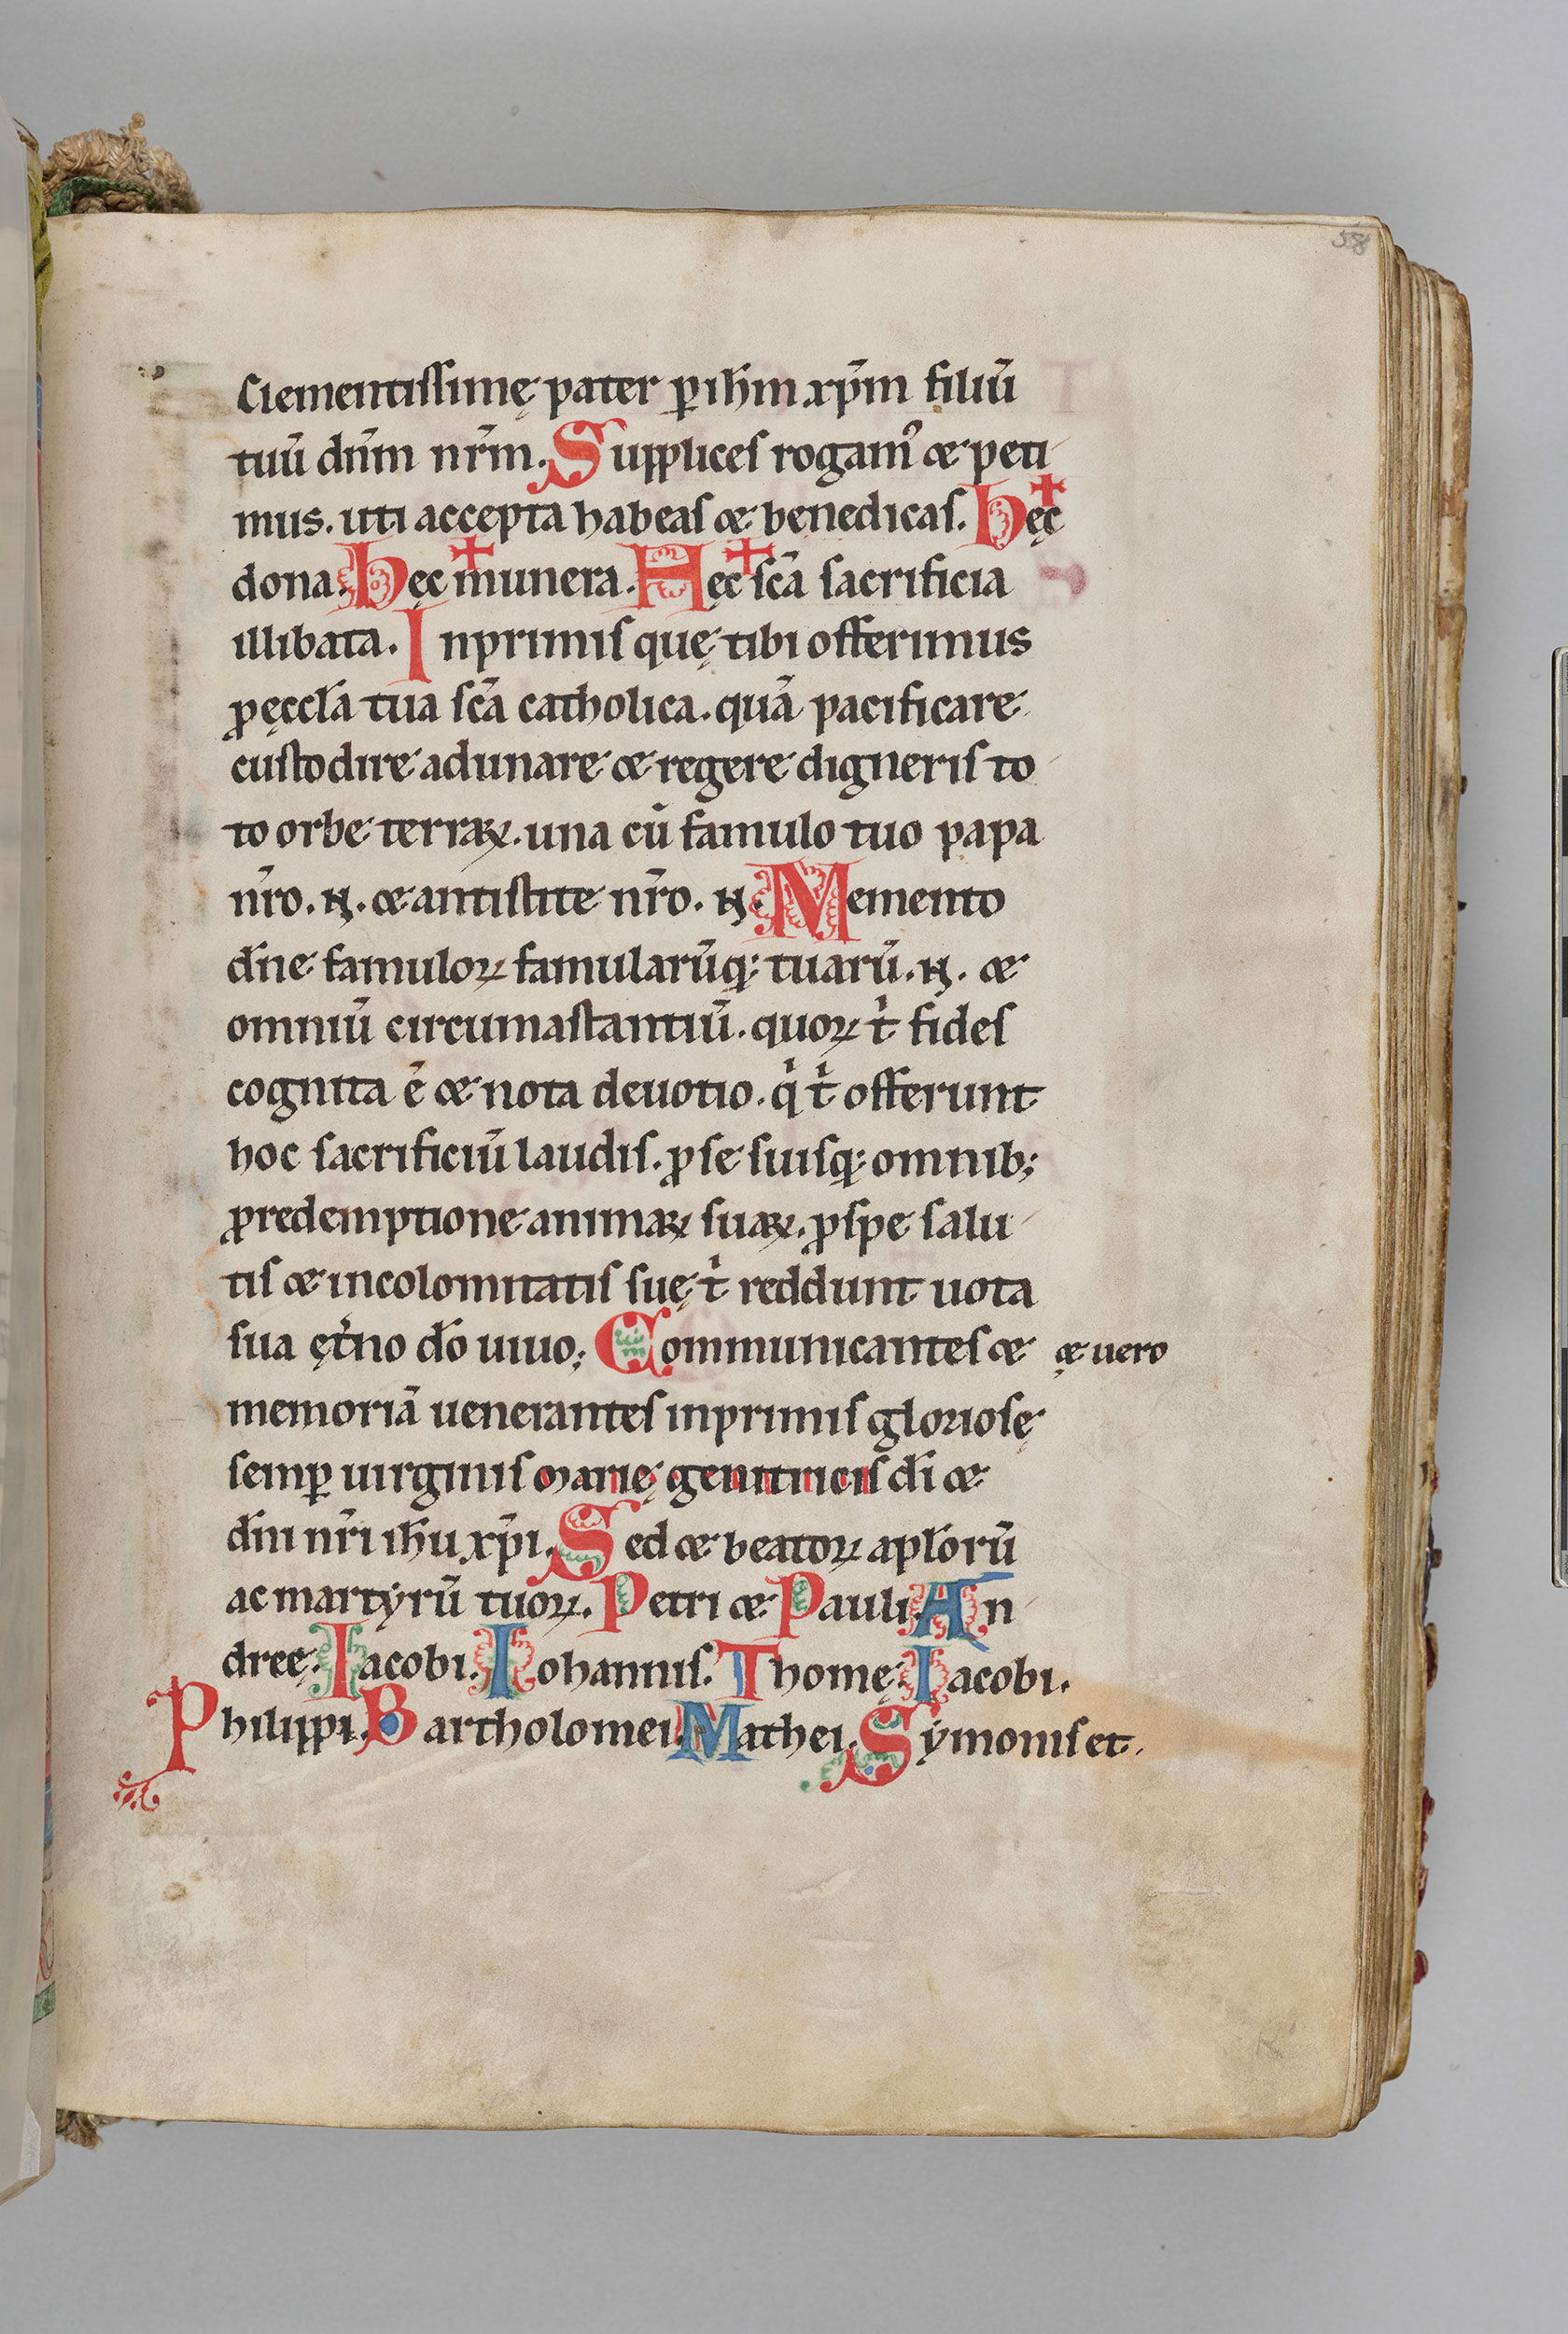 58
clementissimę pater ꝑ ih̅m xp̅m filiu̅
tuu̅ dn̅m nr̅m. Supplices rogam᾽ & peti
mus. uti accepta habeas & benedicas. Hęc
dona. Hęc munera. Hęc sc̅a sacrificia
illibata. Inprimis quę tibi offerimus
ꝓ ęccl̅a tua sc̅a catholica. qua̅ pacificare
custodire adunare & regere digneris to
to orbe terraꝝ. una cu̅ famulo tuo papa
nr̅o. N. & antistite nr̅o. N. Memento
dn̅e famuloꝝ famularu̅q; tuaru̅. N. &
omniu̅ circumastantiu̅. quoꝝ tͥ fides
cognita e̅ & nota deuotio. qͥ tͥ offerunt
hoc sacrificiu̅ laudis. ꝓ se suisq; omnib;
ꝓ redemptione animaꝝ suaꝝ. ꝓ spe salu
tis & incolomitatis suę tͥ reddunt uota
sua ęt̅no do̅ uiuo; Communicantes & & uero
memoria̅ uenerantes inprimis gloriosę
semꝑ uirginis marię genitricis di̅ &
dn̅i nr̅i ih̅u xp̅i. Sed & beatoꝝ apl̅oru̅
ac martyru̅ tuoꝝ. Petri & Pauli. An
dreę. Iacobi. Iohannis. Thomę. Iacobi.
Philippi. Bartholomei. Mathei. Sẏmonis et.